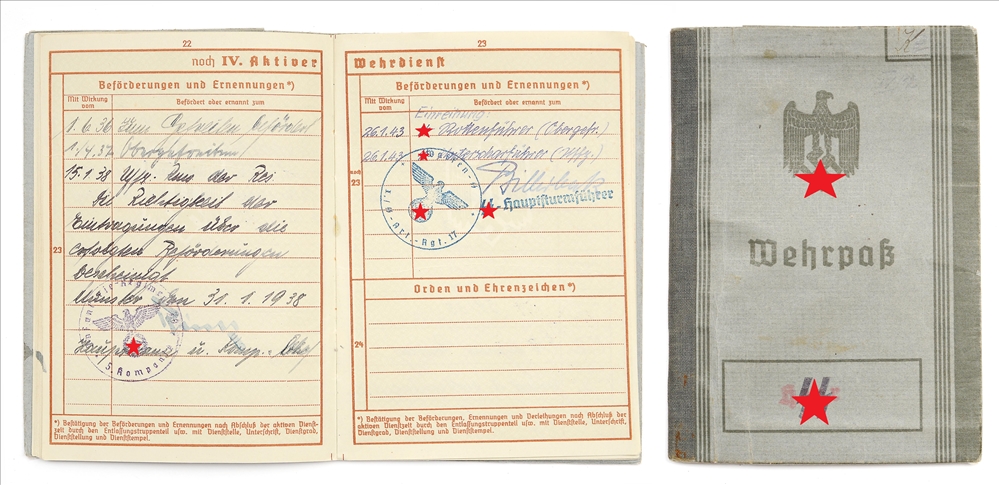 22
noch IV. Aktiver
Beförderungen und Ernennungen*)
Mit Wirkung vom
Befördert oder ernannt zum
1.6.36 Zum Gefreiten befördert
Obergefreiten
15.1.38 Uffz. der
Die Richtigkeit der
23
Eintragungen über die
erfolgten Beförderungen
bescheinigt
Münster, den 31.1.1938
Hauptmann u. Komp.-Chef
5. Kompanie
*) Bestätigung der Beförderungen und Ernennungen nach Abschluß der aktiven Dienst-
zeit durch den Entlassungstruppenteil usw. mit Dienststelle, Unterschrift, Dienstgrad,
Dienststellung und Dienststempel.
23
Wehrdienst
Beförderungen und Ernennungen*)
Mit Wirkung vom
Befördert oder ernannt zum
Einreihung:
26.1.43 Rottenführer (Obergefr.)
26.1.43 Unterscharführer (Uffz.)
noch
23
Waffen-
Art.-Rgt. 17
-Hauptsturmführer
Orden und Ehrenzeichen*)
24
*) Bestätigung der Beförderungen, Ernennungen und Verleihungen nach Abschluß der
aktiven Dienstzeit durch den Entlassungstruppenteil usw. mit Dienststelle, Unterschrift,
Dienstgrad, Dienststellung und Dienststempel.
K
Wehrpaß